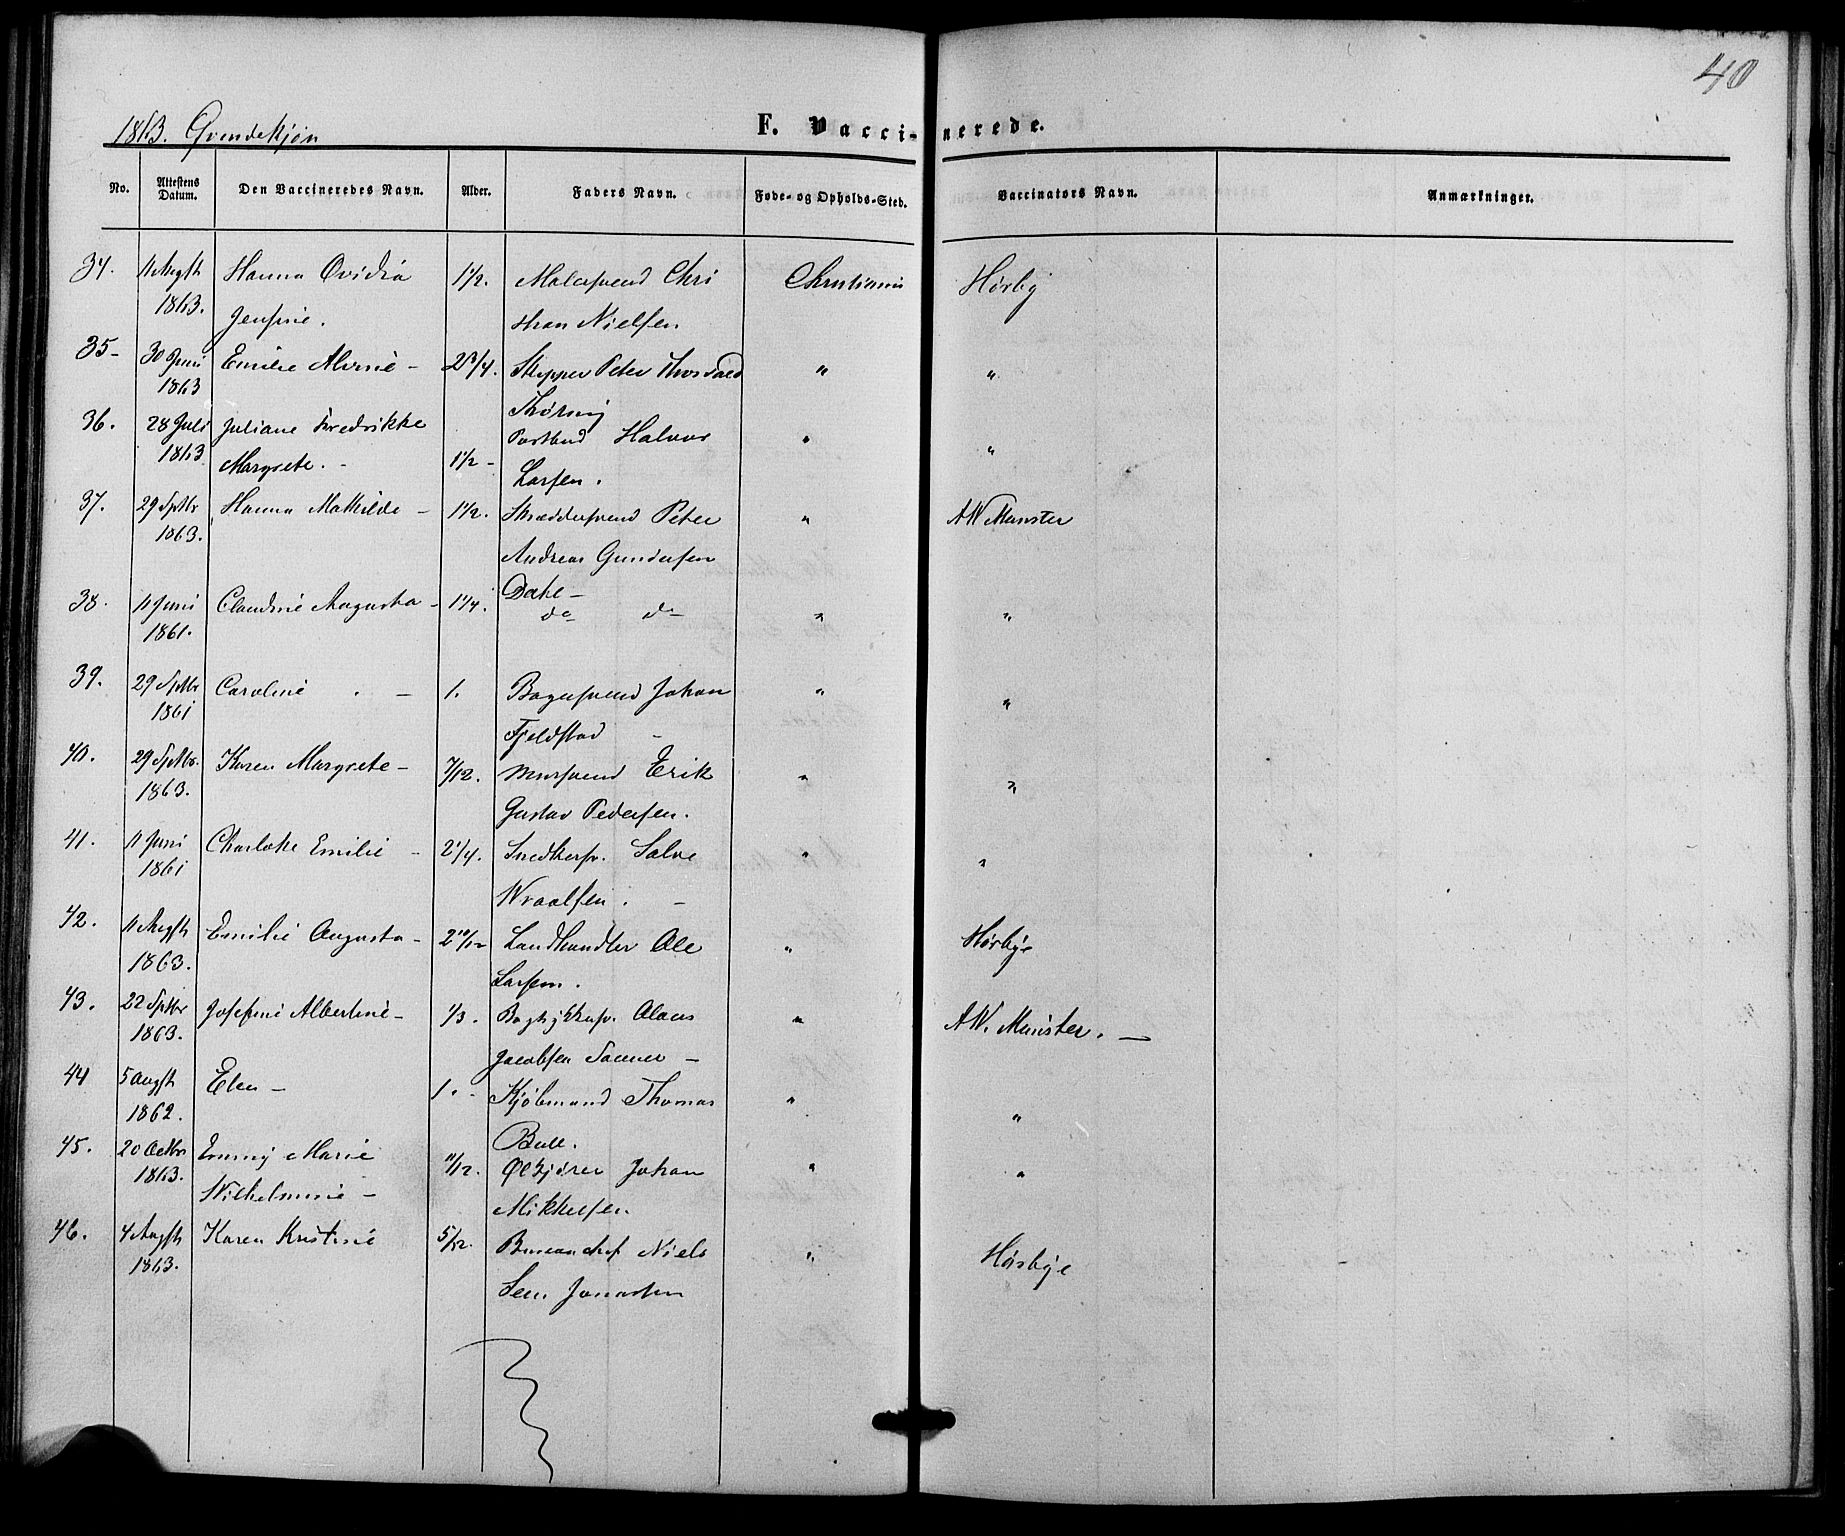 40
1863. Qvindekjøn
F. Vaccinerede.
No. Attestens Datum. Den Vaccineredes Navn. Alder. Faders Navn. Føde- og Opholds-Sted. Vaccinators Navn. Anmærkninger.
34. 11 Augst Hanna Ovidia 1 1/2. Malersvend Chri Christiania Hørby
1863. Jensine. stian Nielsen
35- 30 Juni Emilie Alvine - 2 3/4. Skipper Peter Thorvald " "
1863 Thørning
36. 28 Juli Juliane Fredrikke Postbud Halvor " "
1863 Margrete. - 1 1/2 - Larsen.
37. 29 Sptbr Hanna Mathilde - 1 1/2. Skræddersvend Peter " AW Munster
1863. Andreas Gundersen
Dake -
38. 11 Juni Claudine Augusta - 1 1/4. do do " "
1861.
39. 29 Sptbr Caroline - 1. Bagersvend Johan " "
1861 Fjeldstad -
40. 29 Sptbr. Karen Margrete - 7/12. Mursvend Erik " "
1863. Gustav Pedersen.
41. 11 Juni Charlotte Emilie - 2 1/4. Snedkersv. Salve " "
1861 Wraalsen. -
42. 11 Augst Emilie Augusta - 2 10/12 Landhandler Ole " Hørbye
1863. Larsen.
43. 22 Sptbr Josefine Albertine - 1/3. Olaus " AW. Munster. -
1863. Jacobsen -
44 5 Augst Elen - 1. - Kjøbmand Thomas " "
1862. Bull.
45. 20 Octbr Emmy Marie 11/12. Ølkjører Johan " "
1863. Wilhelmine - Mikkelsen.
46. 4 Augst Karen Kristine 5/12. Bureauchef Niels " Hørbye
1863. Jonassen